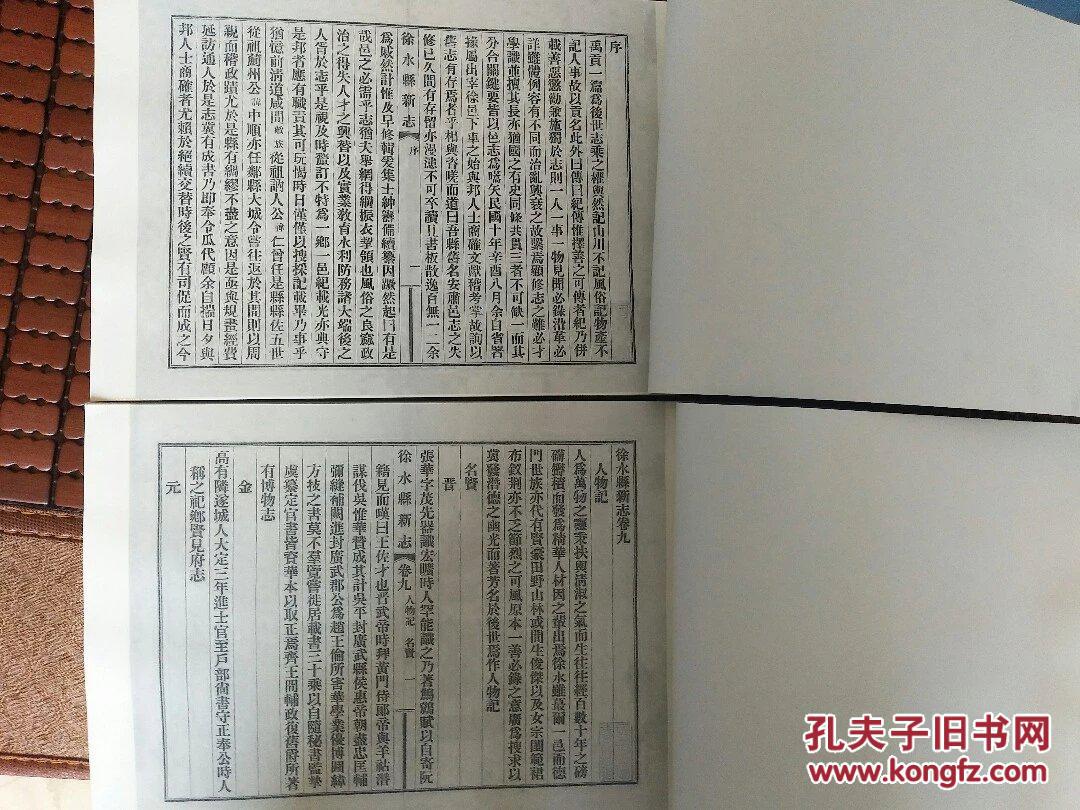 序
禹貢一篇為後世志乘之權輿然記山川不記風俗記物產不
記人事故以貢名此外曰傳曰紀傳惟擇善之可傳者紀乃併
載善惡懲勸兼施獨於志則一人一事一物見聞必錄沿革必
詳雖體例容有不同而治亂興衰之故繫焉顧修志之難必才
學識並擅其長亦猶國之有史同條共貫三者不可缺一而其
分合關鍵要皆以邑志為嚆矢民國十年辛酉八月余自省署
掾屬出宰徐邑下車之始與邦人士商確文獻稽考掌故詢以
舊志有存焉者乎相與咨嗟而道曰吾縣舊名安肅邑志之失
修已久間有存留亦漫漶不可卒讀且書板散逸百無一二余
徐水縣新志 序 一
為慼然計惟及早修輯爰集士紳籌備續纂因躍然起曰有是
哉邑之必需乎志猶夫舉網得綱振衣挈領也風俗之良窳政
治之得失人才之興替以及實業教育水利防務諸大端後之
人胥於志乎是視及時釐訂不特為一鄉一邑紀載光亦與守
是邦者應有職責其可玩愒時日僅僅以搜採記載畢乃事乎
猶憶前清道咸間敝族從祖訥人公諱仁曾任是縣縣佐五世
從祖薊州公諱中順亦任鄰縣大城令嘗往返於其間則以周
覯而稽政蹟尤於是縣有綢繆不盡之意因是亟與規畫經費
延訪通人於是志冀有成書乃即奉令瓜代顧余自攝日夕與
邦人士商確者尤賴於絕續交替時後之賢有司促而成之今
徐水縣新志卷九
人物記
人為萬物之靈秉扶輿清淑之氣而生往往經百數十年之磅
礴鬱積而發為精華人材因之輩出焉徐水雖蕞爾一邑而德
門世族亦代有賢豪田野山林或間生俊傑以及女宗閨範裙
布釵荊亦不乏節烈之可風原本一善必錄之意廣為搜求以
冀發潛德之幽光而著芳名於後世焉作人物記
名賢
晋
張華字茂先器識宏曠時人罕能識之乃著鷦鷯賦以自寄阮
徐水縣新志 卷九 人物記 名賢 一
籍見而嘆曰王佐才也晋武帝時拜黃門侍郎帝與羊祜潛
謀伐吳惟華贊成其計吳平封廣武縣侯惠帝朝盡忠匡輔
彌縫補闕進封廣武郡公為趙王倫所害華學業優博圖緯
方技之書莫不羣覽嘗徙居載書三十乘以自隨秘書監摯
虞纂定官書皆資華本以取正焉齊王冏輔政復舊爵所著
有博物志
金
高有隣遂城人大定三年進士官至戶部尚書守正奉公時人
稱之祀鄉賢見府志
元
孔夫子旧书网
www.kongfz.com